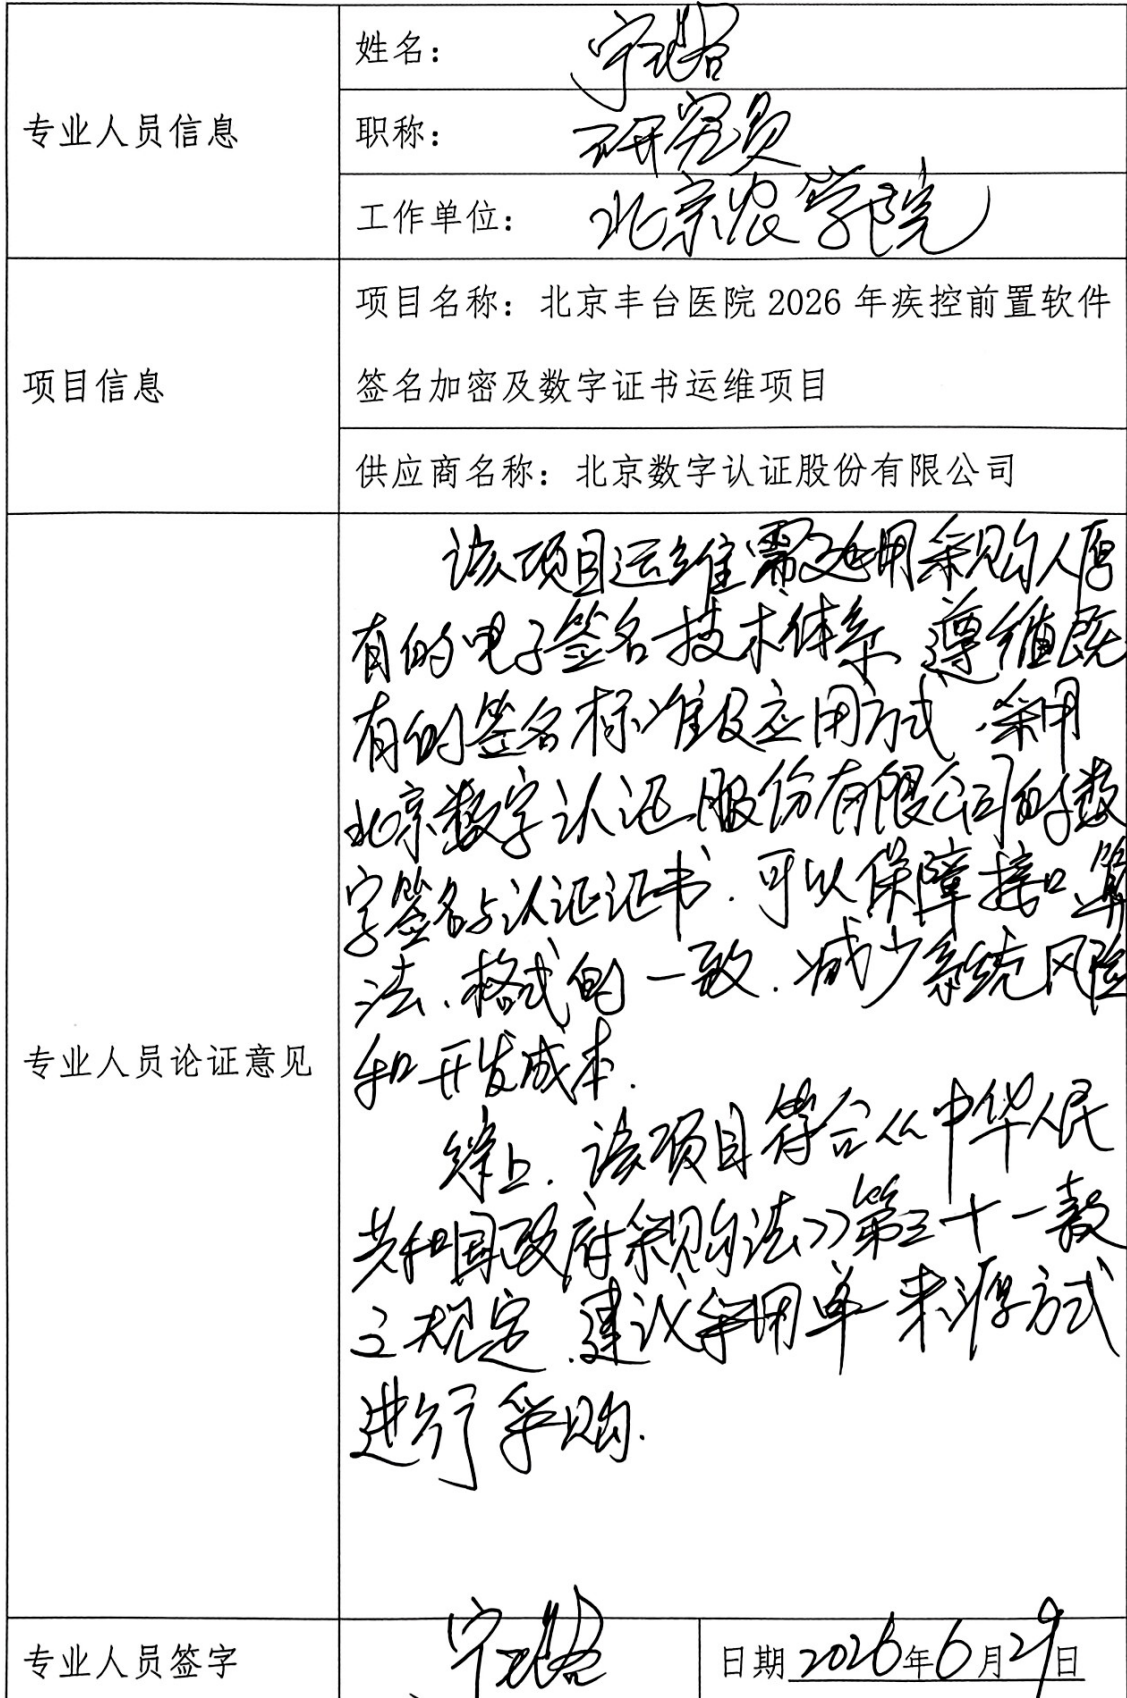 姓名：
专业人员信息
职称： 研究员
工作单位： 北京农学院
项目名称：北京丰台医院 2026 年疾控前置软件
项目信息
签名加密及数字证书运维项目
供应商名称：北京数字认证股份有限公司
该项目运维需要延用采购人原
有的电子签名技术体系 遵循既
有的签名标准及应用方式，采用
北京数字认证股份有限公司的数
字签名与认证证书.可以保障接口算
法、格式的一致.减少系统风险
和开发成本.
专业人员论证意见
综上.该项目符合《中华人民
共和国政府采购法》第三十一款
之规定.建议采用单一来源方式
进行采购.
专业人员签字
日期2026年6月29日